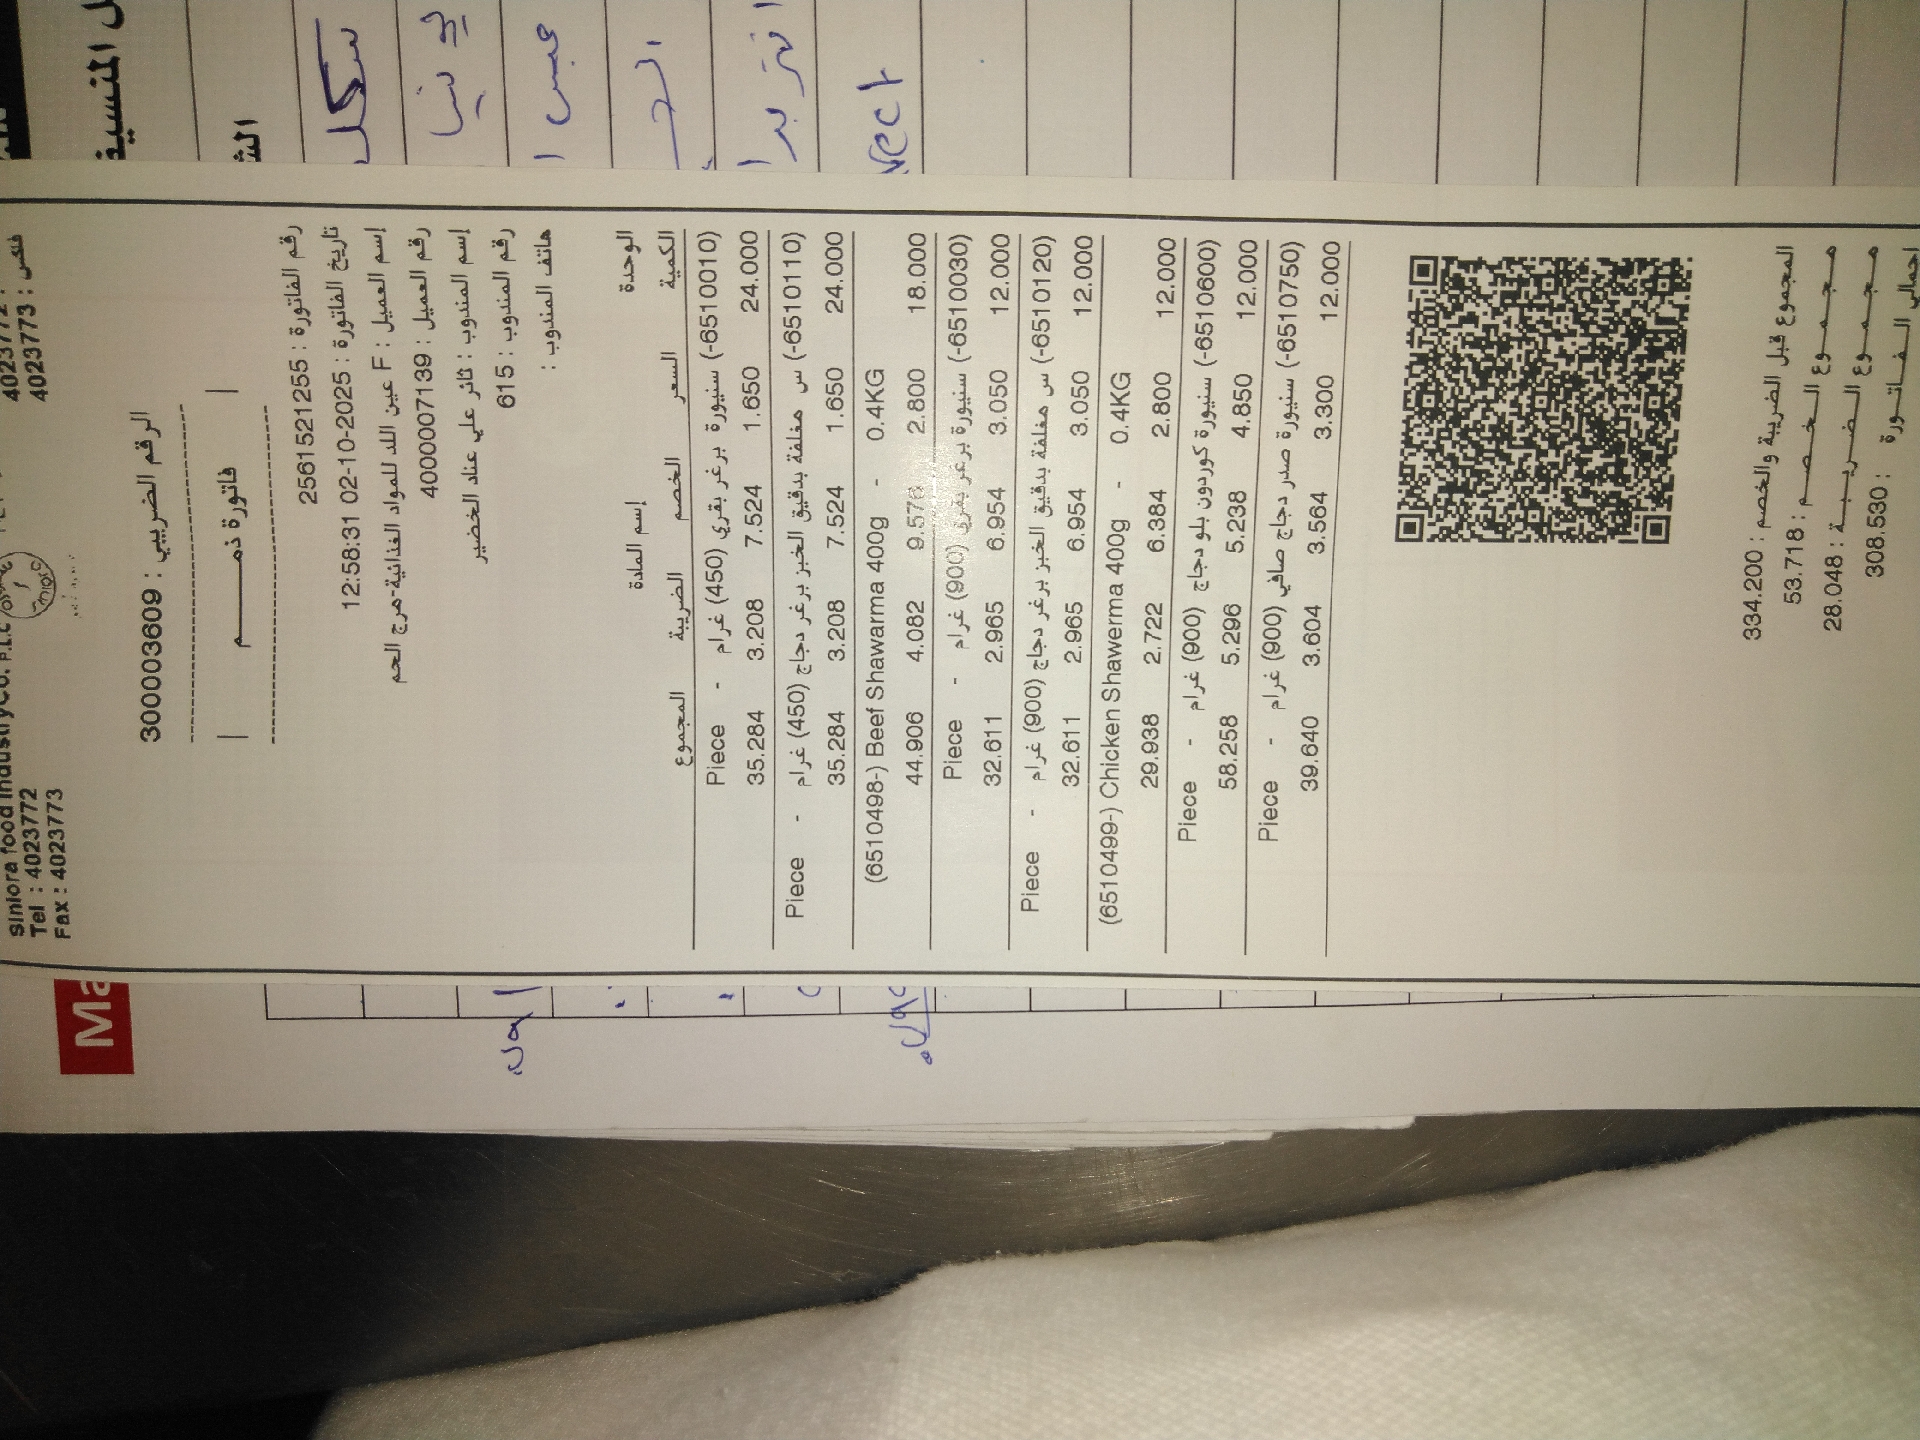 Siniora food industryCo. P.L.C
Tel : 4023772
Fax : 4023773
فاكس : 4023773
الرقم الضريبي : 3000003609
| فاتورة ذمـــــــم |
رقم الفاتورة : 2561521255
تاريخ الفاتورة : 2025-10-02 12:58:31
إسم العميل : F عين اللد للمواد الغذائية-مرج الحم
رقم العميل : 4000007139
إسم المندوب : ثائر علي عناد الخضير
رقم المندوب : 615
هاتف المندوب :
إسم المادة الوحدة
الكمية السعر الخصم الضريبة المجموع
(-6510010) سنيورة برغر بقري (450) غرام - Piece
35.284 3.208 7.524 1.650 24.000
(-6510110) س مغلفة بدقيق الخبز برغر دجاج (450) غرام - Piece
35.284 3.208 7.524 1.650 24.000
(6510498-) Beef Shawarma 400g - 0.4KG
44.906 4.082 9.576 2.800 18.000
(-6510030) سنيورة برغر بقري (900) غرام - Piece
32.611 2.965 6.954 3.050 12.000
(-6510120) س مغلفة بدقيق الخبز برغر دجاج (900) غرام - Piece
32.611 2.965 6.954 3.050 12.000
(6510499-) Chicken Shawerma 400g - 0.4KG
29.938 2.722 6.384 2.800 12.000
(-6510600) سنيورة كوردون بلو دجاج (900) غرام - Piece
58.258 5.296 5.238 4.850 12.000
(-6510750) سنيورة صدر دجاج صافي (900) غرام - Piece
39.640 3.604 3.564 3.300 12.000
المجموع قبل الضريبة والخصم : 334.200
مـجـمــوع الـخـصـــم : 53.718
مـجـمــوع الـضـريـبــة : 28.048
اجمالي الـفــاتــورة : 308.530